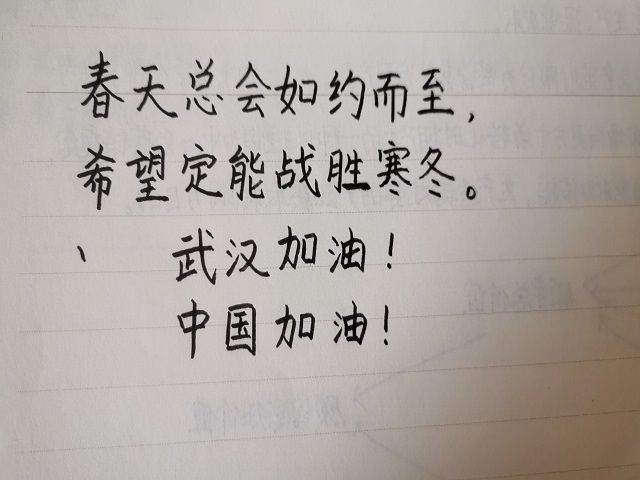 春天总会如约而至，
希望定能战胜寒冬。
武汉加油！
中国加油！